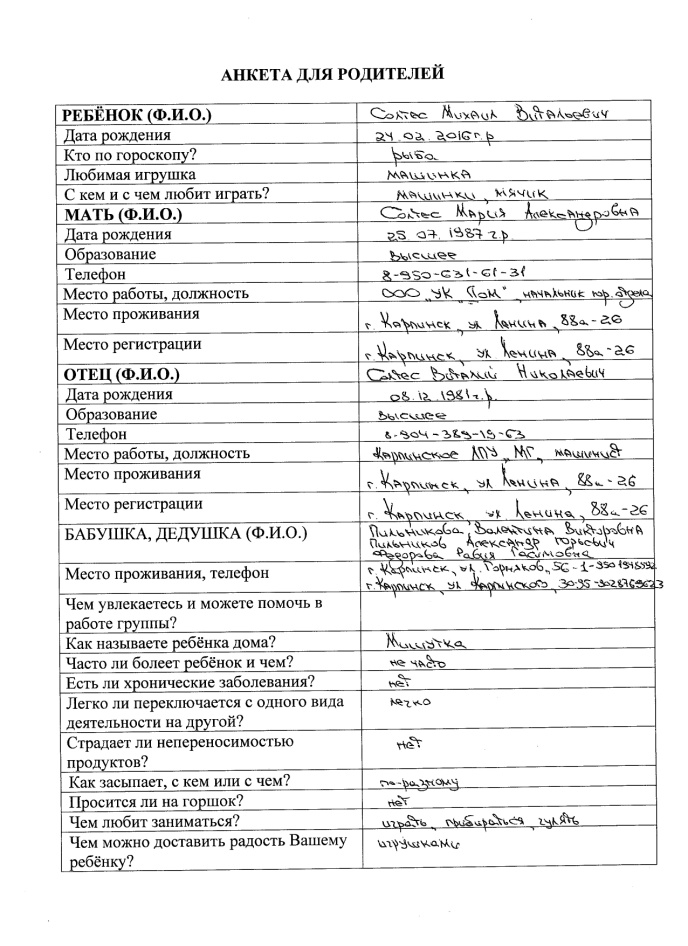 АНКЕТА ДЛЯ РОДИТЕЛЕЙ
РЕБЁНОК (Ф.И.О.) Солтес Михаил Витальевич
Дата рождения 24.02.2016 г.р
Кто по гороскопу? рыба
Любимая игрушка машинка
С кем и с чем любит играть? машинки, мячик
МАТЬ (Ф.И.О.) Солтес Мария Александровна
Дата рождения 25.07.1987 г.р
Образование высшее
Телефон 8-950-631-61-31
Место работы, должность ООО "УК "Дом", начальник юр. отдела
Место проживания г. Карпинск, ул Ленина, 88а-26
Место регистрации г. Карпинск, ул Ленина, 88а-26
ОТЕЦ (Ф.И.О.) Солтес Виталий Николаевич
Дата рождения 08.12.1981 г.р
Образование высшее
Телефон 8-904-389-19-63
Место работы, должность Карпинское ЛПУ МГ, машинист
Место проживания г. Карпинск, ул Ленина, 88а-26
Место регистрации г. Карпинск, ул Ленина, 88а-26
БАБУШКА, ДЕДУШКА (Ф.И.О.) Пильникова Валентина Викторовна
Пильников Александр Юрьевич
Федорова Равия Гасимовна
Место проживания, телефон г. Карпинск, ул. Горняков, 56-1-
г. Карпинск, ул Карпинского, 30-95-9028769623
Чем увлекаетесь и можете помочь в
работе группы?
Как называете ребёнка дома? Мишутка
Часто ли болеет ребёнок и чем? не часто
Есть ли хронические заболевания? нет
Легко ли переключается с одного вида легко
деятельности на другой?
Страдает ли непереносимостью нет
продуктов?
Как засыпает, с кем или с чем? по-разному
Просится ли на горшок? нет
Чем любит заниматься? играть, прибираться, гулять
Чем можно доставить радость Вашему игрушками
ребёнку?